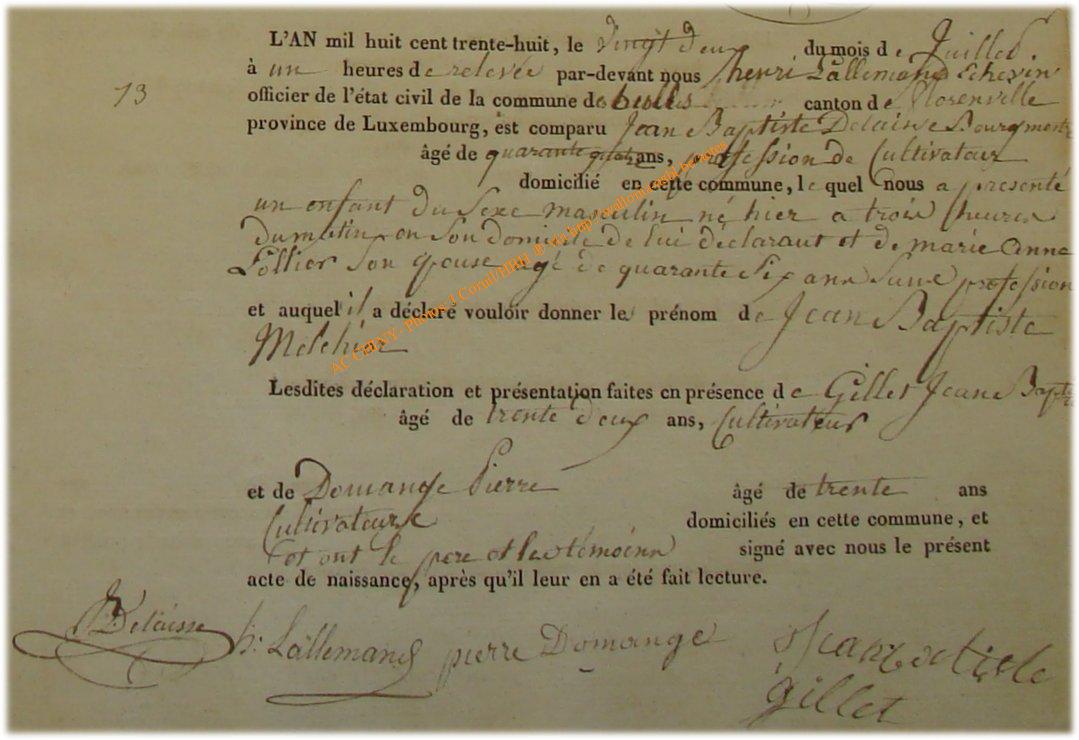 13
L'AN mil huit cent trente-huit, le vingt deux du mois de Juillet
à un heures de relevée par-devant nous henri Lallemand Echevin
officier de l'état civil de la commune de canton de florenville
province de Luxembourg, est comparu Jean Baptiste Delaisse Bourgmestre
âgé de quarante quatre ans, profession de Cultivateur
domicilié en cette commune, le quel nous a presenté
un enfant du sexe masculin né hier a trois heures
du matin en son domicile de lui déclarant et de marie anne
Lollier son epouse agé de quarante six ans sans profession
et auquel il a déclaré vouloir donner les prénom de Jean Baptiste
Melchior
Lesdites déclaration et présentation faites en présence de Gillet Jean Bapt
âgé de trente deux ans, Cultivateur
et de Domange Pierre âgé de trente ans
Cultivateurs domiciliés en cette commune, et
et ont le pere et les témoins signé avec nous le présent
acte de naissance, après qu'il leur en a été fait lecture.
Delaisse h. Lallemand pierre Domange Jean batiste
gillet
AC CHINY - Photos J Cornl/HHH